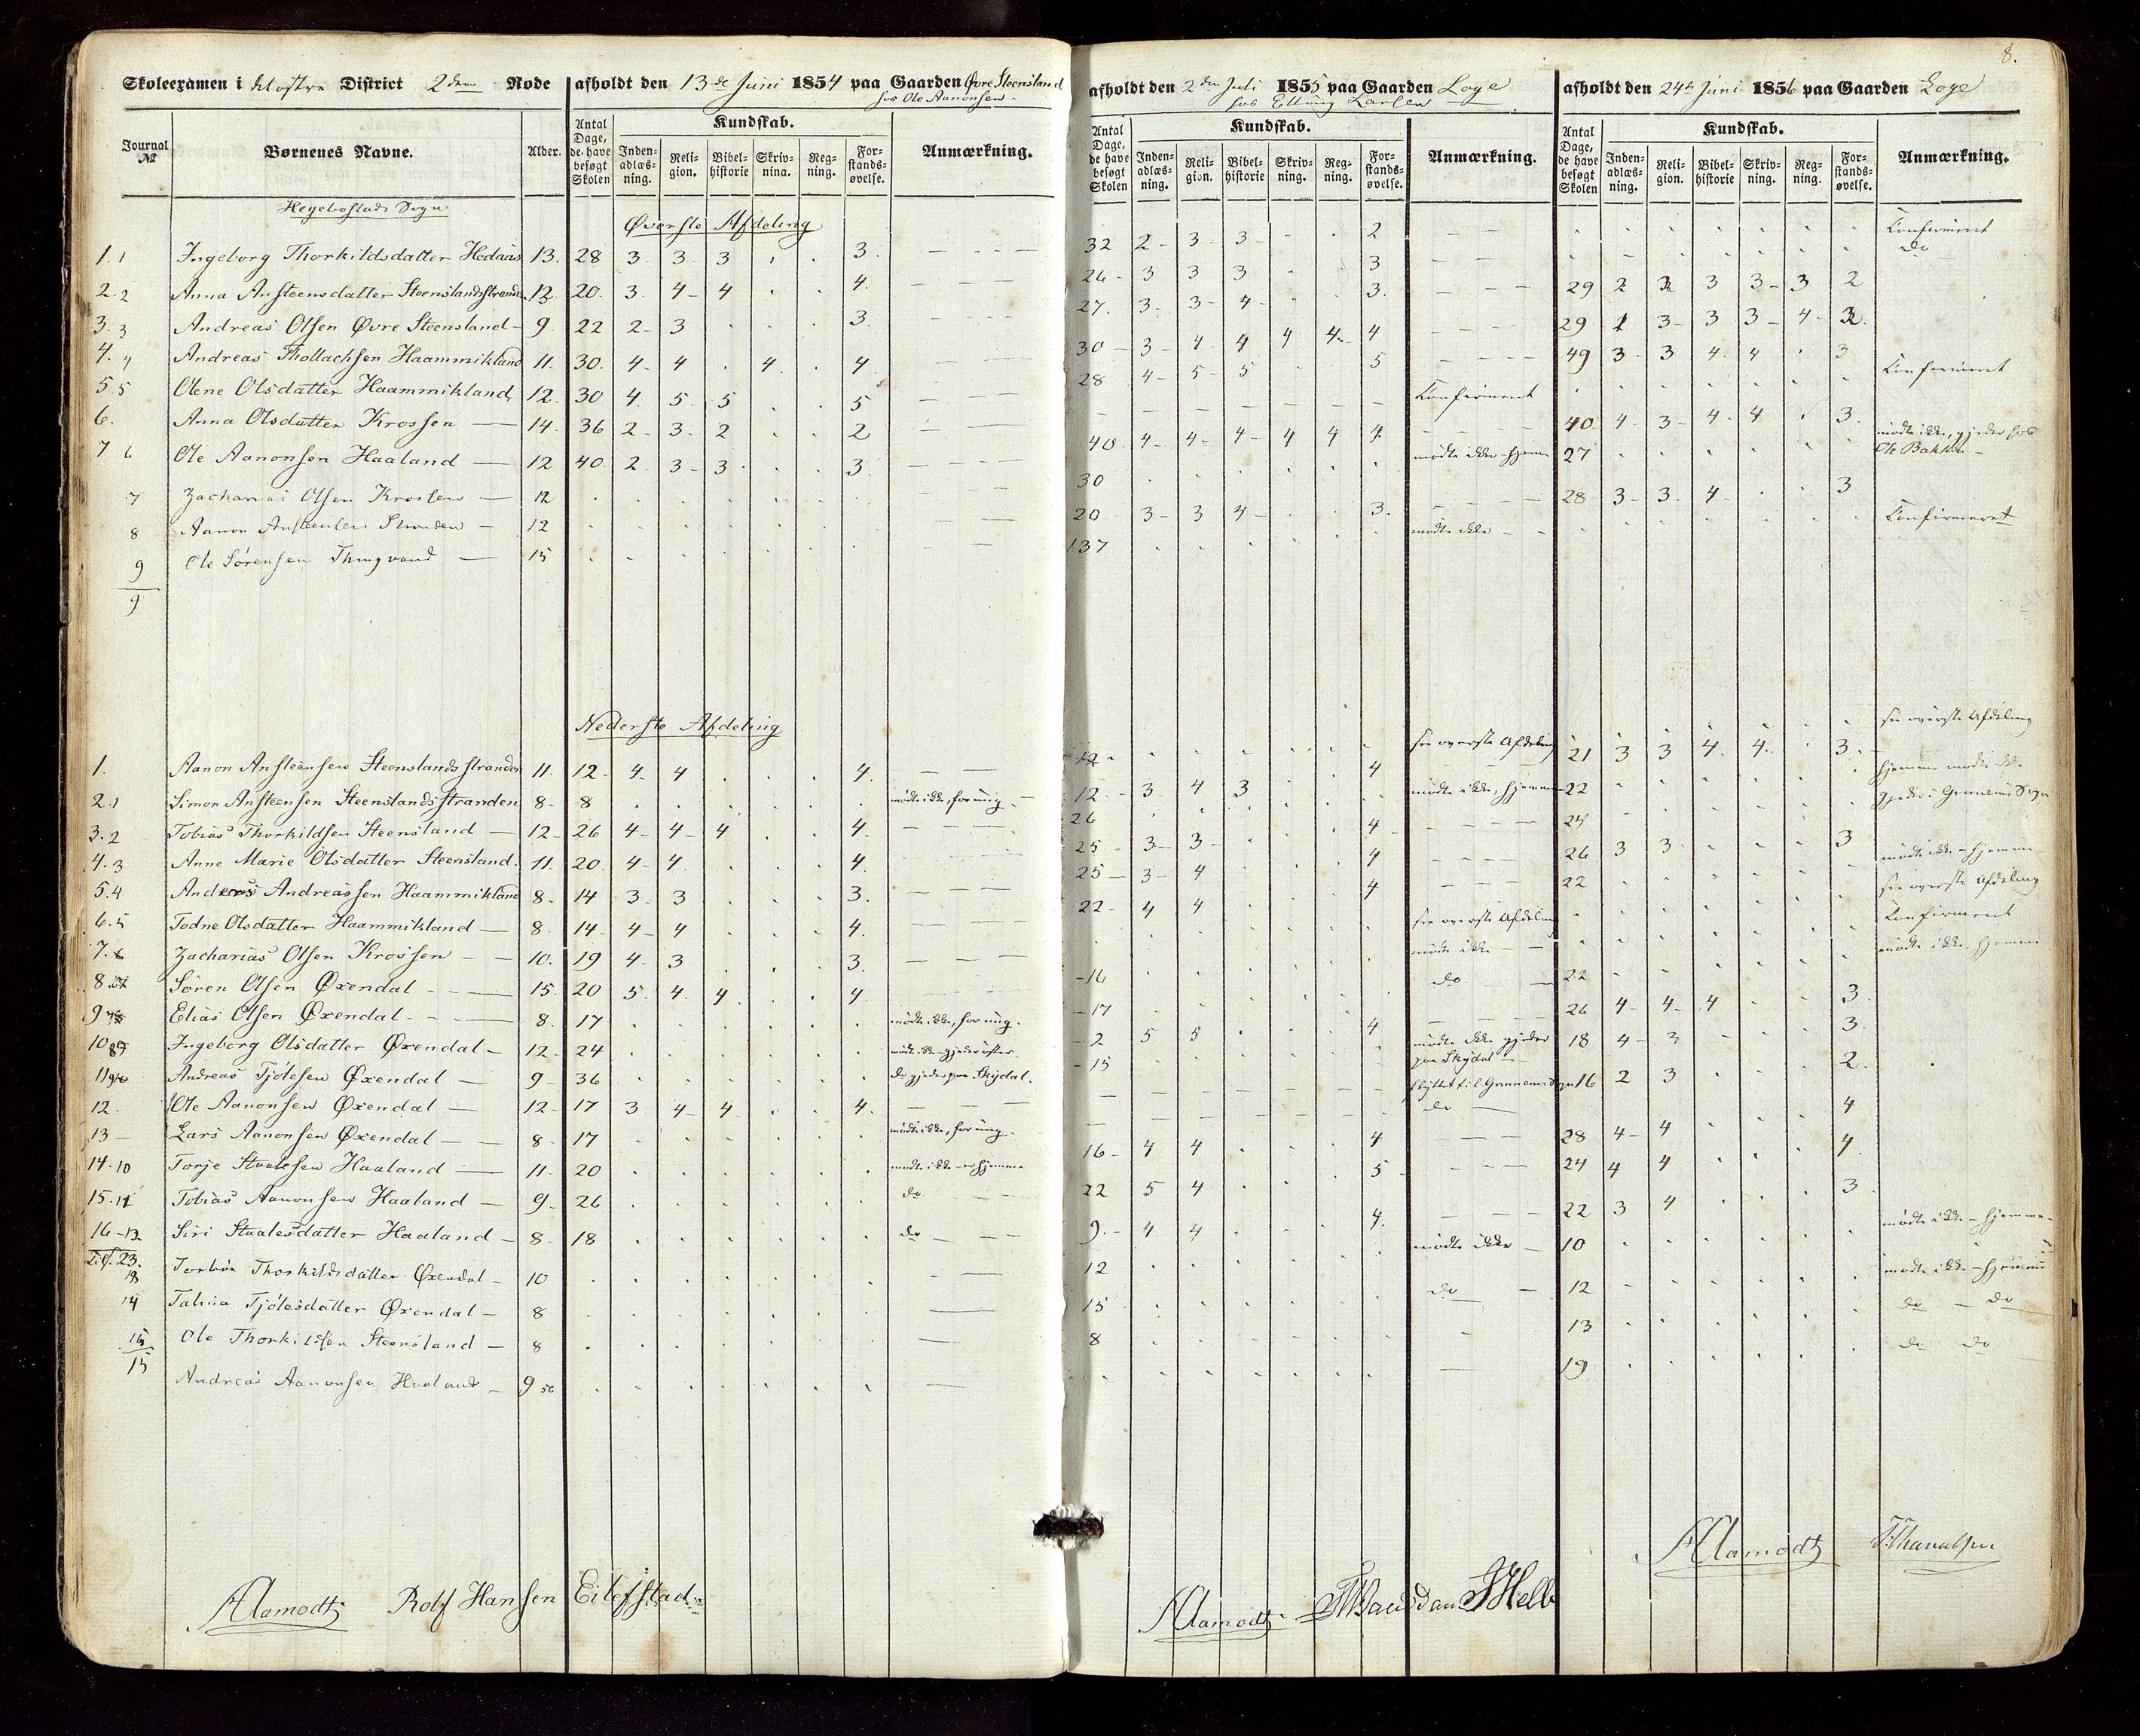 8.
Skoleexamen i Klostre District 2den Rode afholdt den 13de Juni 1854 paa Gaarden Øvre Steensland
hos Ole Aanonsen -
afholdt den 2den Juli 1855 paa Gaarden Loge
hos Larsen
afholdt den 24de Juni 1856 paa Gaarden Loge
Journal No Børnenes Navne. Alder. Antal Dage, de have besøgt Skolen Kundskab. Inden-adlæs-ning. Reli-gion. Bibel-historie Skriv-nina. Reg-ning. For-stands-øvelse. Anmærkning.
Antal Dage, de have besøgt Skolen Kundskab. Inden-adlæs-ning. Reli-gion. Bibel-historie Skriv-ning. Reg-ning. For-stands-øvelse. Anmærkning.
Antal Dage, de have besøgt Skolen Kundskab. Inden-adlæs-ning. Reli-gion. Bibel-historie Skriv-ning. Reg-ning. For-stands-øvelse. Anmærkning.
Hegebostads Sogn
Øverste Afdeling
1. 1 Ingeborg Thorkildsdatter Hedaas 13. 28 3. 3. 3 . . 3. 32 2 3 3 . . 2 Confirmeret
2. 2 Anna Ansteensdatter Steenslandsstranden 12 20. 3. 4 4 . . 4. 26 3 3 3 . 3 do
3. 3 Andreas Olsen Øvre Steensland 9. 22 2 3 . . . 3. 27. 3 3 4 . . 3. 29 2 3 3 3 3 2
4. 4 Andreas Thollachsen Haammikland 11. 30. 4 4 . 4. . 4 30 3 4 4 4 4 4 29 1 3 3 3 4 3
5 5 Olene Olsdatter Haammikland 12. 30 4. 5 5 . . 5 28 4 5 5 . . 5 49 3 3 4 4 . 3
6. Anna Olsdatter Krossen 14. 36 2 3 2 . . 2 Confirmeret Confirmeret
7 6 Ole Aanonsen Haaland 12 40. 2. 3 3 . . 3 40 4 4 4 4 4 4 40 4 3 4 4 . 3.
7 Zacharias Olsen Krossen 12 30 mødte ikke hjemme 27 mødte ikke, gjeder hos Ole Bakke
8 Aanon Ansteensen Stranden 12 20 3 3 4 . . 3. 28 3 3 4 . . 3
9 Ole Sørensen Thingvand 15 137 mødte ikke Confirmeret
9
Nederste Afdeling
1. Aanon Ansteensen Steenslandsstranden 11. 12 4 4 . . . 4. 12 see øverste Afdeling see øverste Afdeling
2. 1 Simon Ansteensen Steenslandsstranden 8 8 mødte ikke, for ung. 12 3 4 3 . . 4 21 3 3 4 4 . 3.
3. 2 Tobias Thorkildsen Steensland 12 26 4 4 4 . . 4. 26 mødte ikke, hjemme 22 hjemme mødte ikke
4. 3 Anne Marie Olsdatter Steensland 11. 20 4 4 . . . 4. 25 3 3 . . . 4 24 gjeder i Sogn
5. 4 Anders Andreassen Haammikland 8 14 3 3 . . . 3. 25 3 4 . . . 4 26 3 3 . . . 3
6. 5 Todne Olsdatter Haammikland 8. 14 4 4 . . . 4. 22 4 4 . . . 4 22 mødte ikke hjemme
7. 6 Zacharias Olsen Krossen 10. 19 4 3 . . . 3. see øverste Afdeling see øverste Afdeling
8 Søren Olsen Øxendal 15. 20 5 4. 4 . . 4 16 mødte ikke Confirmeret
9 Elias Olsen Øxendal 8. 17 mødte ikke, for ung. 17 do 22 mødte ikke, hjemme
10 Ingeborg Olsdatter Øxendal 12 24 mødte ikke gjeder 2 5 5 . . . 4 26 4 4 4 . . 3
11 Andreas Tjølesen Øxendal 9 36 do gjeder paa Skydal. 15 mødte ikke gjeder paa Skydal 18 4 3 . . . 3
12. Ole Aanonsen Øxendal 12 17 3. 4 4 . . 4. flyttet til 16 2 3 . . . 2
13 Lars Aanonsen Øxendal 8 17 mødte ikke, for ung. do
14. 10 Torje Staalesen Haaland 11 20 mødte ikke hjemme 16 4 4 . . . 4 28 4 4 . . . 4
15. 11 Tobias Aanonsen Haaland 9 26 do 22 5 4 . . . 5 24 4 4 . . . 4
16 12 Siri Staalesdatter Haaland 8 18 do 9. 4 4 . . . 4. 22 3 4 . . . 3
13 Thorkildsdatter Øxendal 10 12 mødte ikke 10 mødte ikke hjemme
14 Talina Tjølesdatter Øxendal 8 15 do 12 mødte ikke hjemme
15 Ole Thorkildsen Steensland 8 8 13 do do
15
Andreas Aanonsen Haaland 9 56 19 do do
AAamodt Rolf Hansen Eilefstad
AAamodt
AAamodt